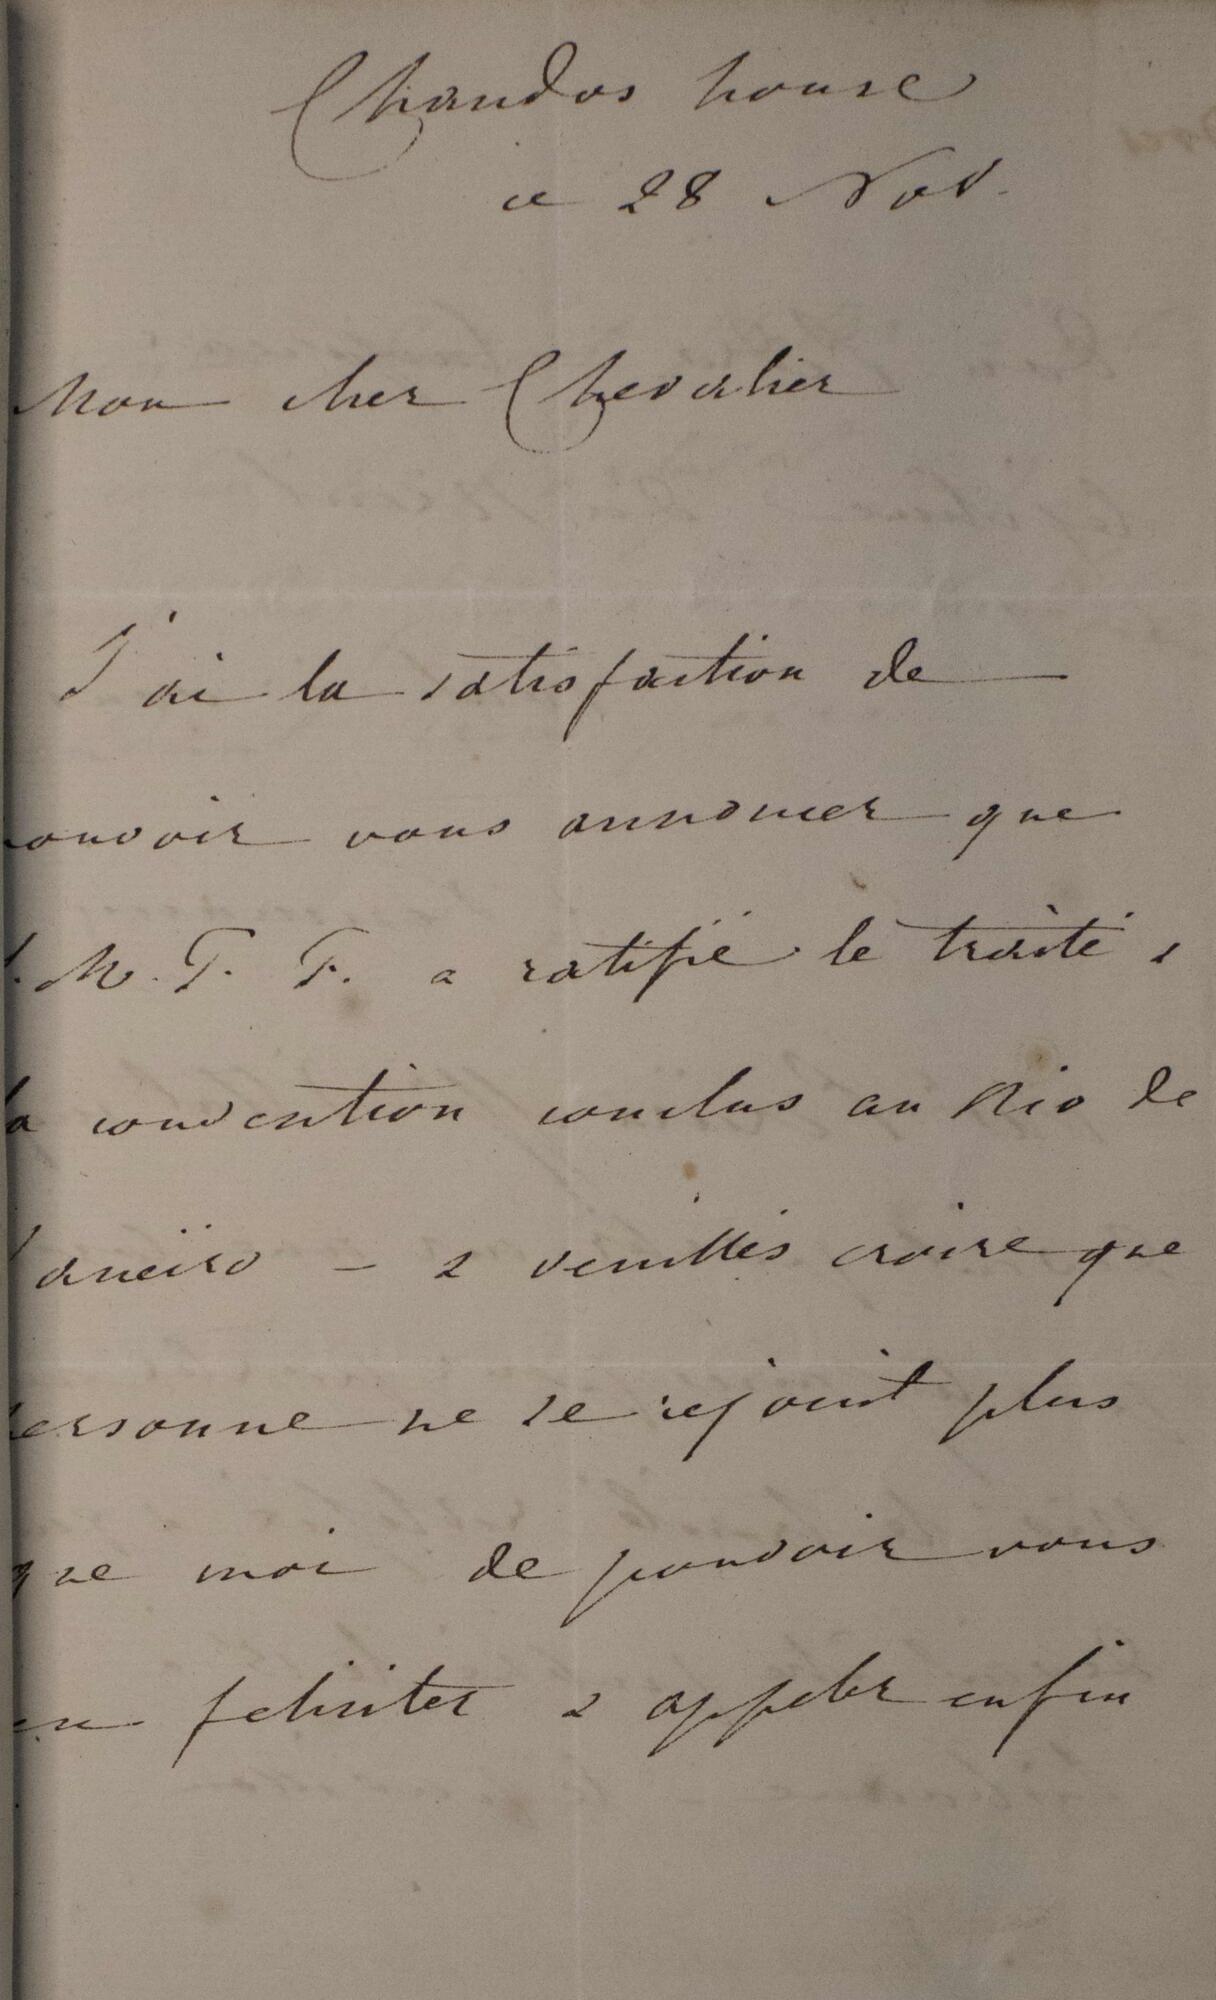 Chandos house
ce 28 Nov.
Mon cher Chevalier
J'ai la satisfaction de
pouvoir vous annoncer que
S. M. T. F. a ratifié le traité &
la convention conclus au Rio de
Janeiro – & veuillés croire que
personne ne se rejouit plus
que moi de pouvoir vous
en feliciter & appeler enfin